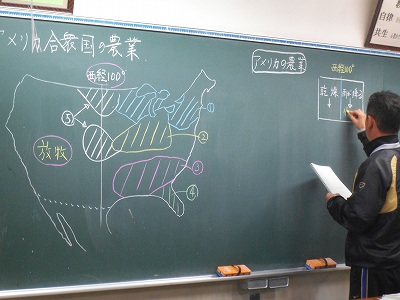 アメリカ合衆国の農業
西経100°
①
②
③
④
⑤
放牧
アメリカの農業
西経100°
乾燥
雨が降る
自律
共生